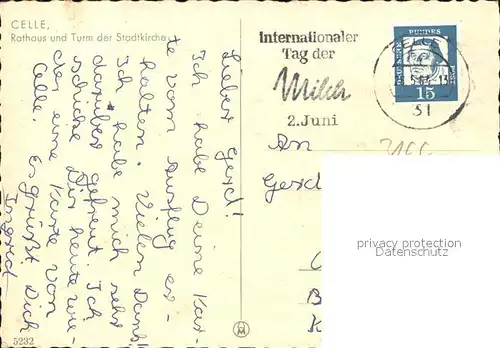 CELLE,
Rathaus und Turm der Stadtkirche
Lieber Gerd!
Ich habe Deine Kar-
te vom Ausflug er-
halten. Vielen Dank
Ich habe mich sehr
darüber gefreut. Ich
schicke Dir heute wie-
der eine Karte von
Celle. Es grüßt Dich
Ingrid
5232
Internationaler
Tag der
Milch
2. Juni
DEUTSCHE BUNDESPOST
15
31
An
Gerd
privacy protection
www.ansichtskartenversand.com